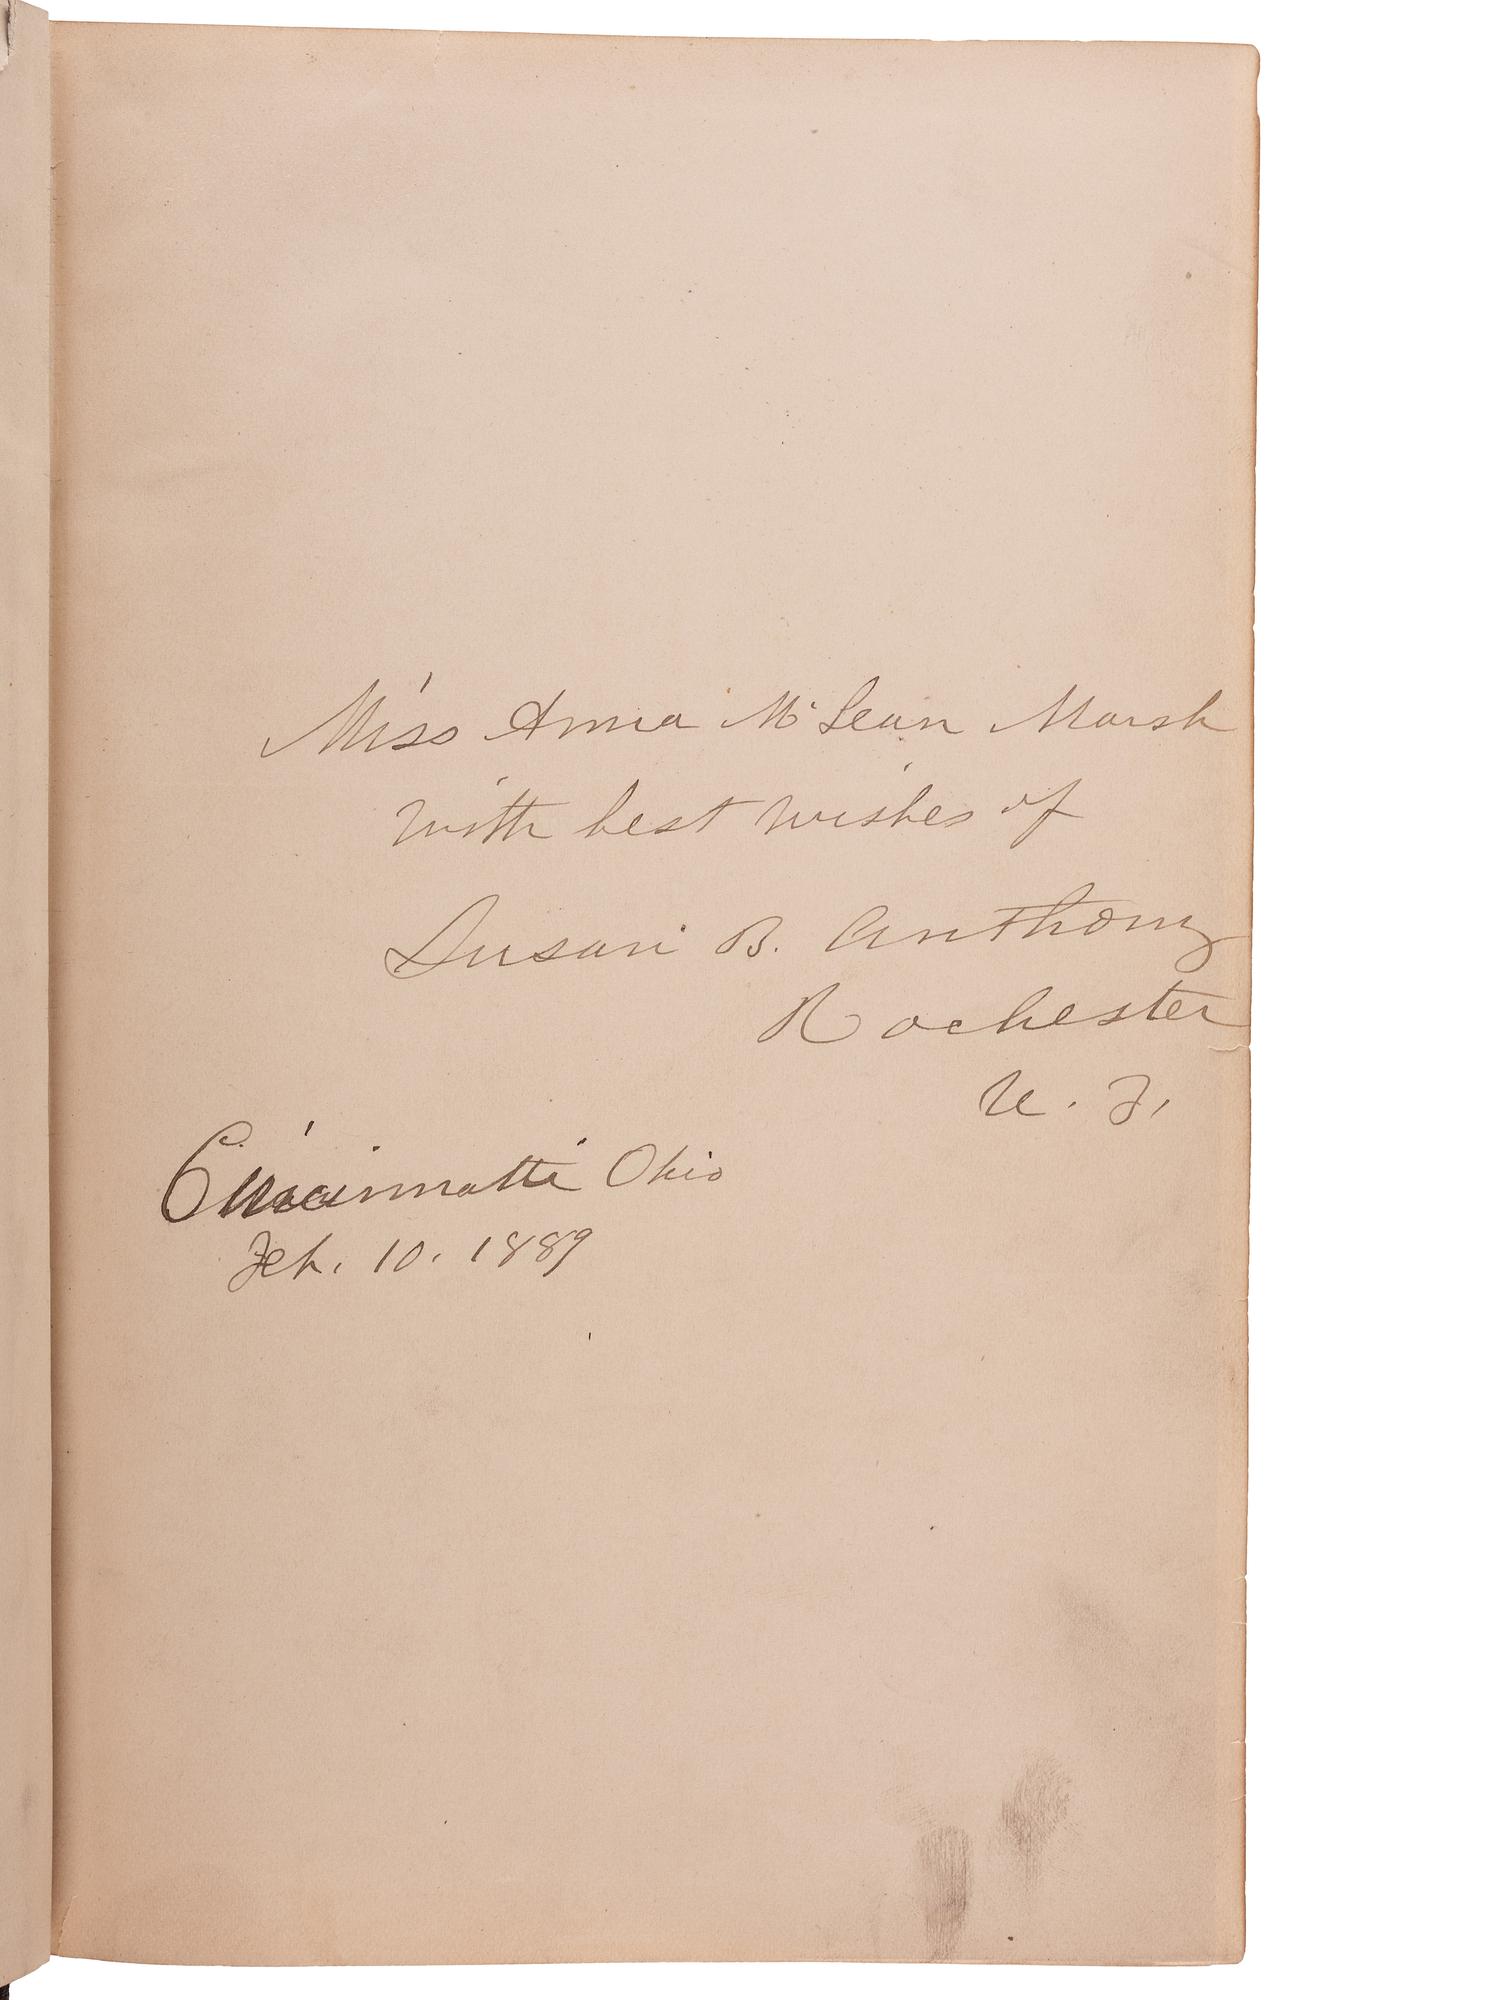 Miss Anna McLean Marsh
with best wishes of
Susan B. Anthony
Rochester
N. Y.
Cincinnatti Ohio
Feb. 10. 1889